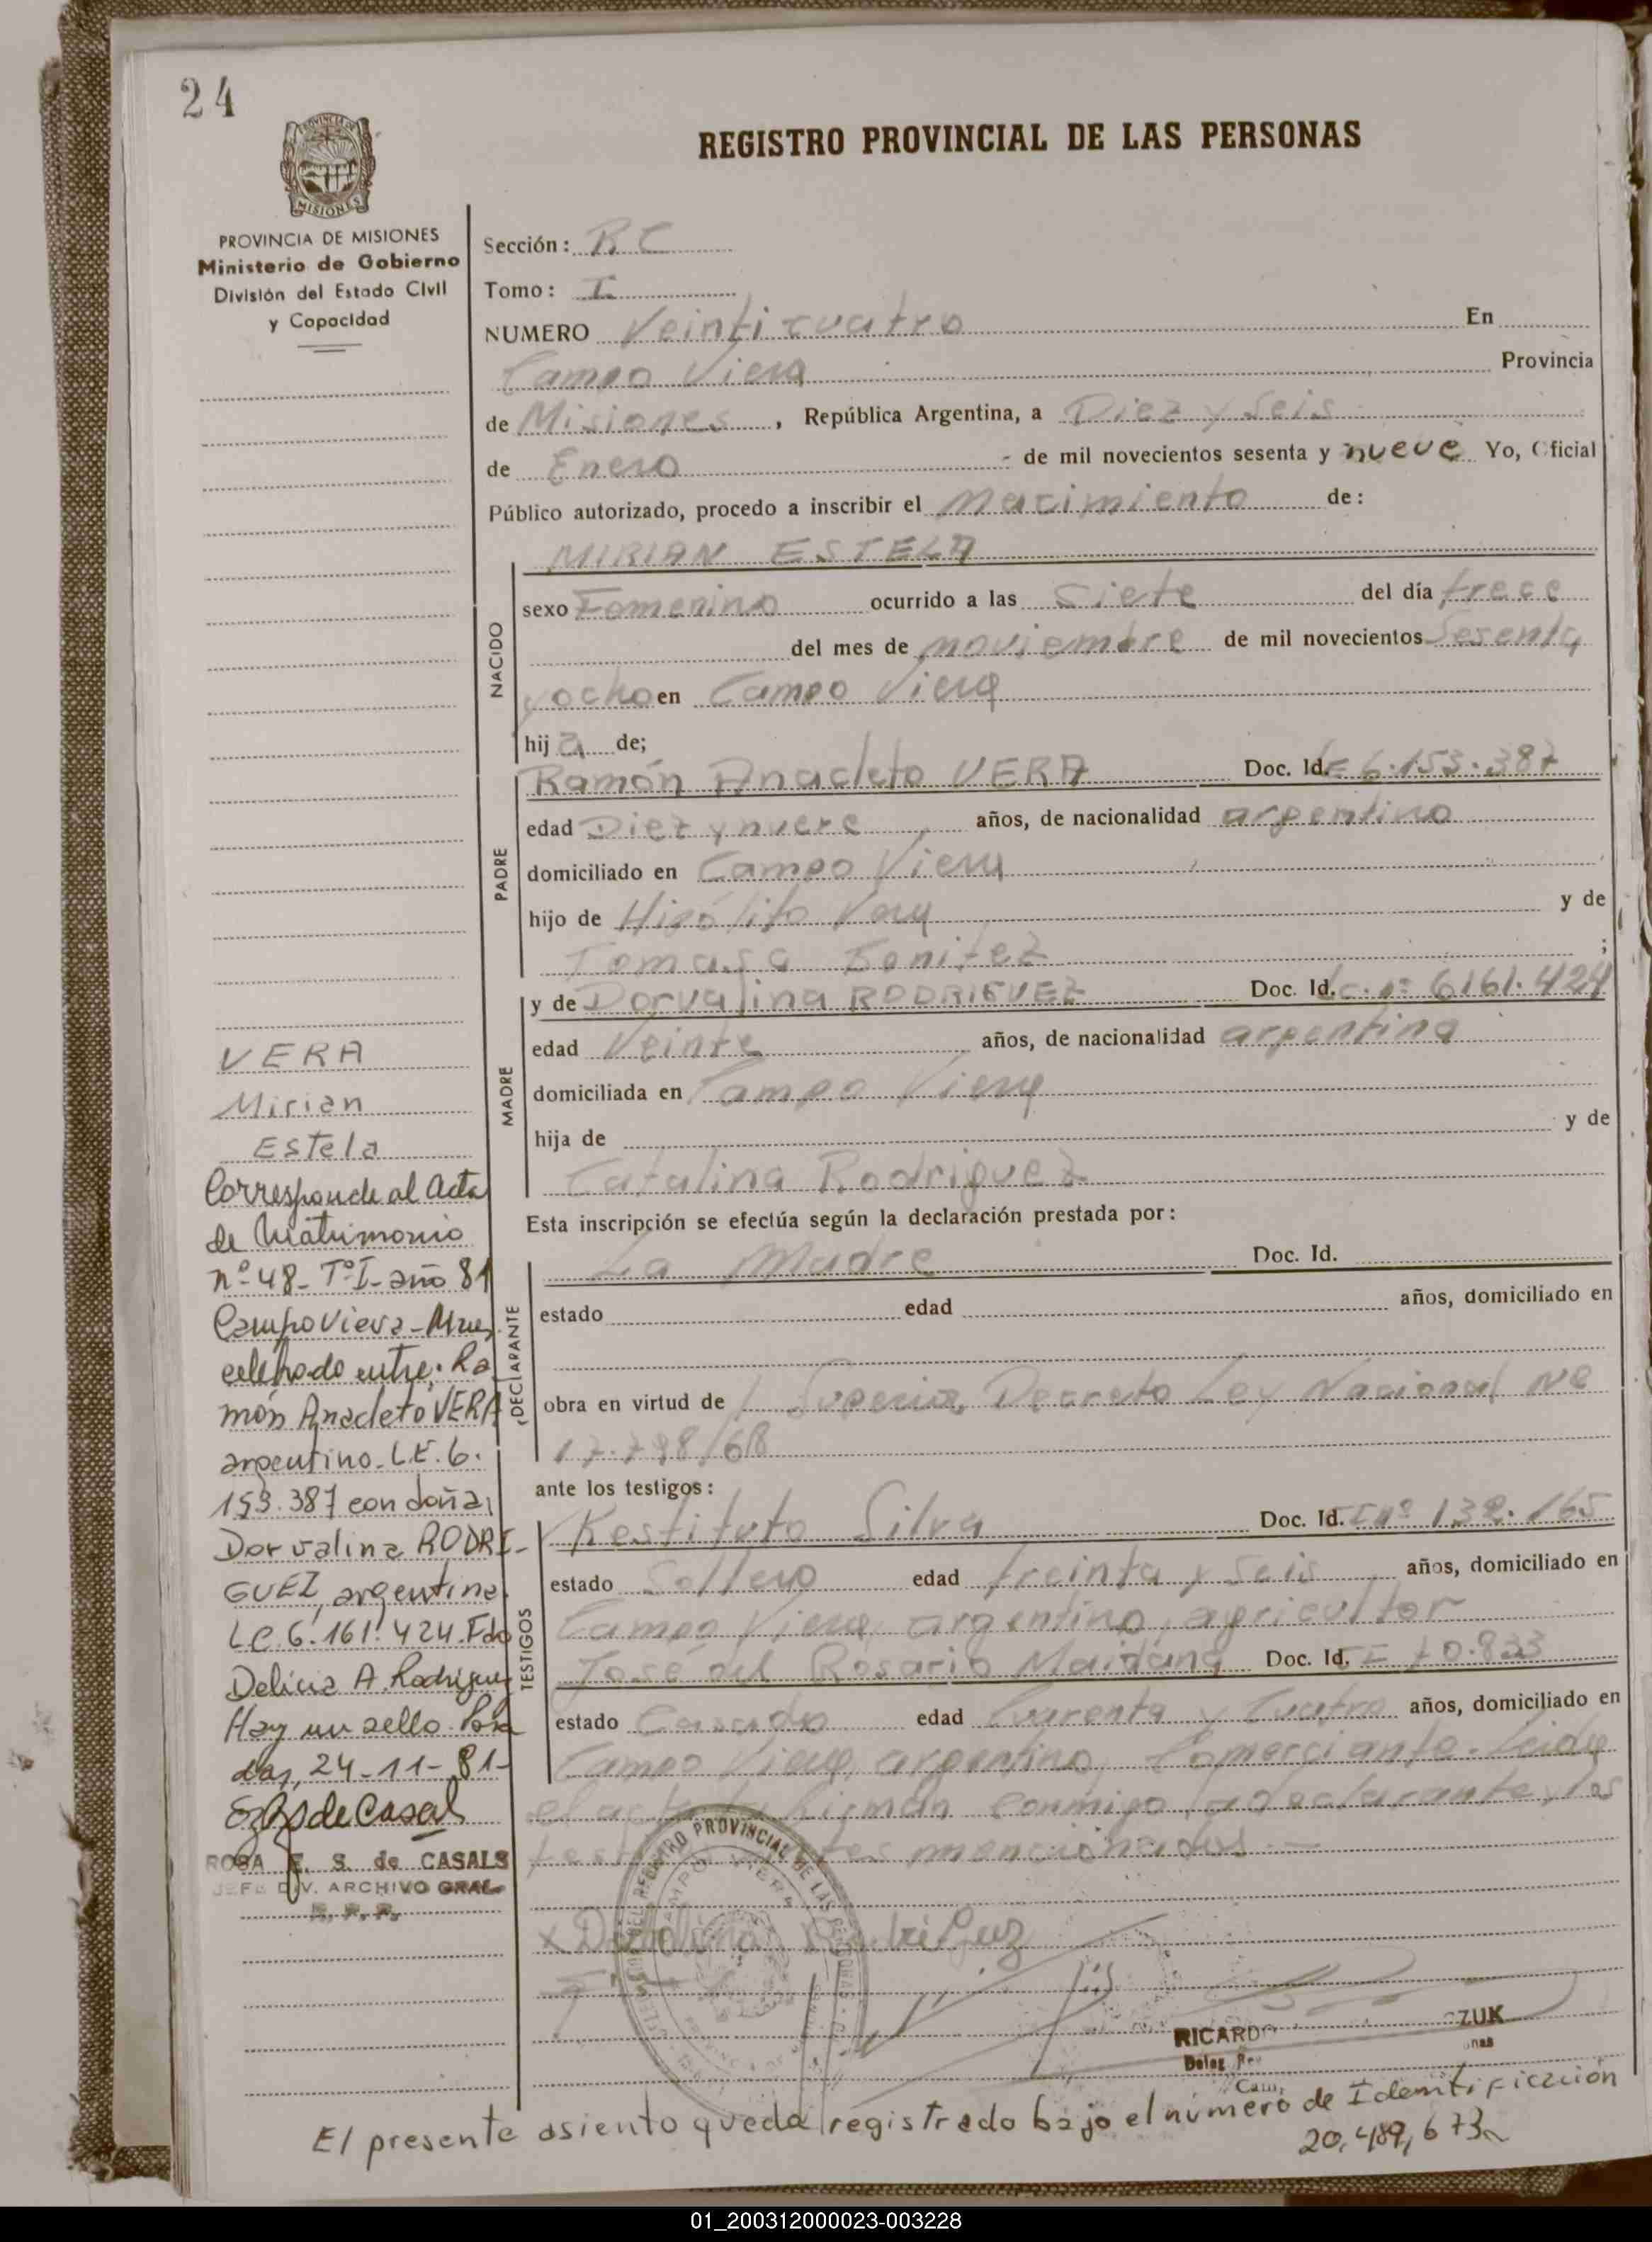 24
REGISTRO PROVINCIAL DE LAS PERSONAS
PROVINCIA DE MISIONES
Ministerio de Gobierno
División del Estado Civil
y Capacidad
Sección: RC
Tomo: I
NUMERO Veinticuatro En
Campo Viera Provincia
de Misiones, República Argentina, a Diez y Seis
de Enero - de mil novecientos sesenta y nueve Yo, Oficial
Público autorizado, procedo a inscribir el Nacimiento de:
MIRIAN ESTELA
NACIDO
sexo Femenino ocurrido a las Siete del día trece
del mes de noviembre de mil novecientos Sesenta
y ocho en Campo Viera
hija de;
PADRE
Ramón Anacleto VERA Doc. Id. 6.153.387
edad Diez y nueve años, de nacionalidad argentino
domiciliado en Campo Viera
hijo de Hipólito Vera y de
Tomasa Benitez ;
MADRE
y de Dorvalina RODRIGUEZ Doc. Id. Lc. nº 6161.424
edad Veinte años, de nacionalidad argentina
domiciliada en Campo Viera
hija de y de
Catalina Rodriguez
Esta inscripción se efectúa según la declaración prestada por:
DECLARANTE
La Madre Doc. Id.
estado edad años, domiciliado en
obra en virtud de Superior Decreto Ley Nacional Nº
17.798/68
ante los testigos:
TESTIGOS
Restituto Silva Doc. Id. nº 132.165
estado Soltero edad treinta y Seis años, domiciliado en
Campo Viera, argentino, agricultor
José del Rosario Maidana Doc. Id. 70.833
estado Casado edad Cuarenta y Cuatro años, domiciliado en
Campo Viera, argentino, Comerciante. Leida
el acta la firman conmigo, la declarante y los
mencionados. —
x Dorvalina Rodriguez
VERA
Mirian
Estela
Corresponde al Acta
de Matrimonio
nº 48- Tº I- año 81
Campo Viera - Mnes
celebrado entre: Ra
món Anacleto VERA
argentino. L.E. 6.
153.387 con doña
Dorvalina RODRI-
GUEZ, argentina
LC 6.161.424. Fdo
Delicia A. Rodriguez
Hay un sello. Posa
das, 24-11-81-
ROSA E. S. de CASALS
JEFE DIV. ARCHIVO GRAL.
R. P. P.
REGISTRO PROVINCIAL DE LAS PERSONAS
CAMPO VIERA
RICARDO ZUK
Deleg
El presente asiento queda registrado bajo el número de Identificación
20,489,673
01_200312000023-003228